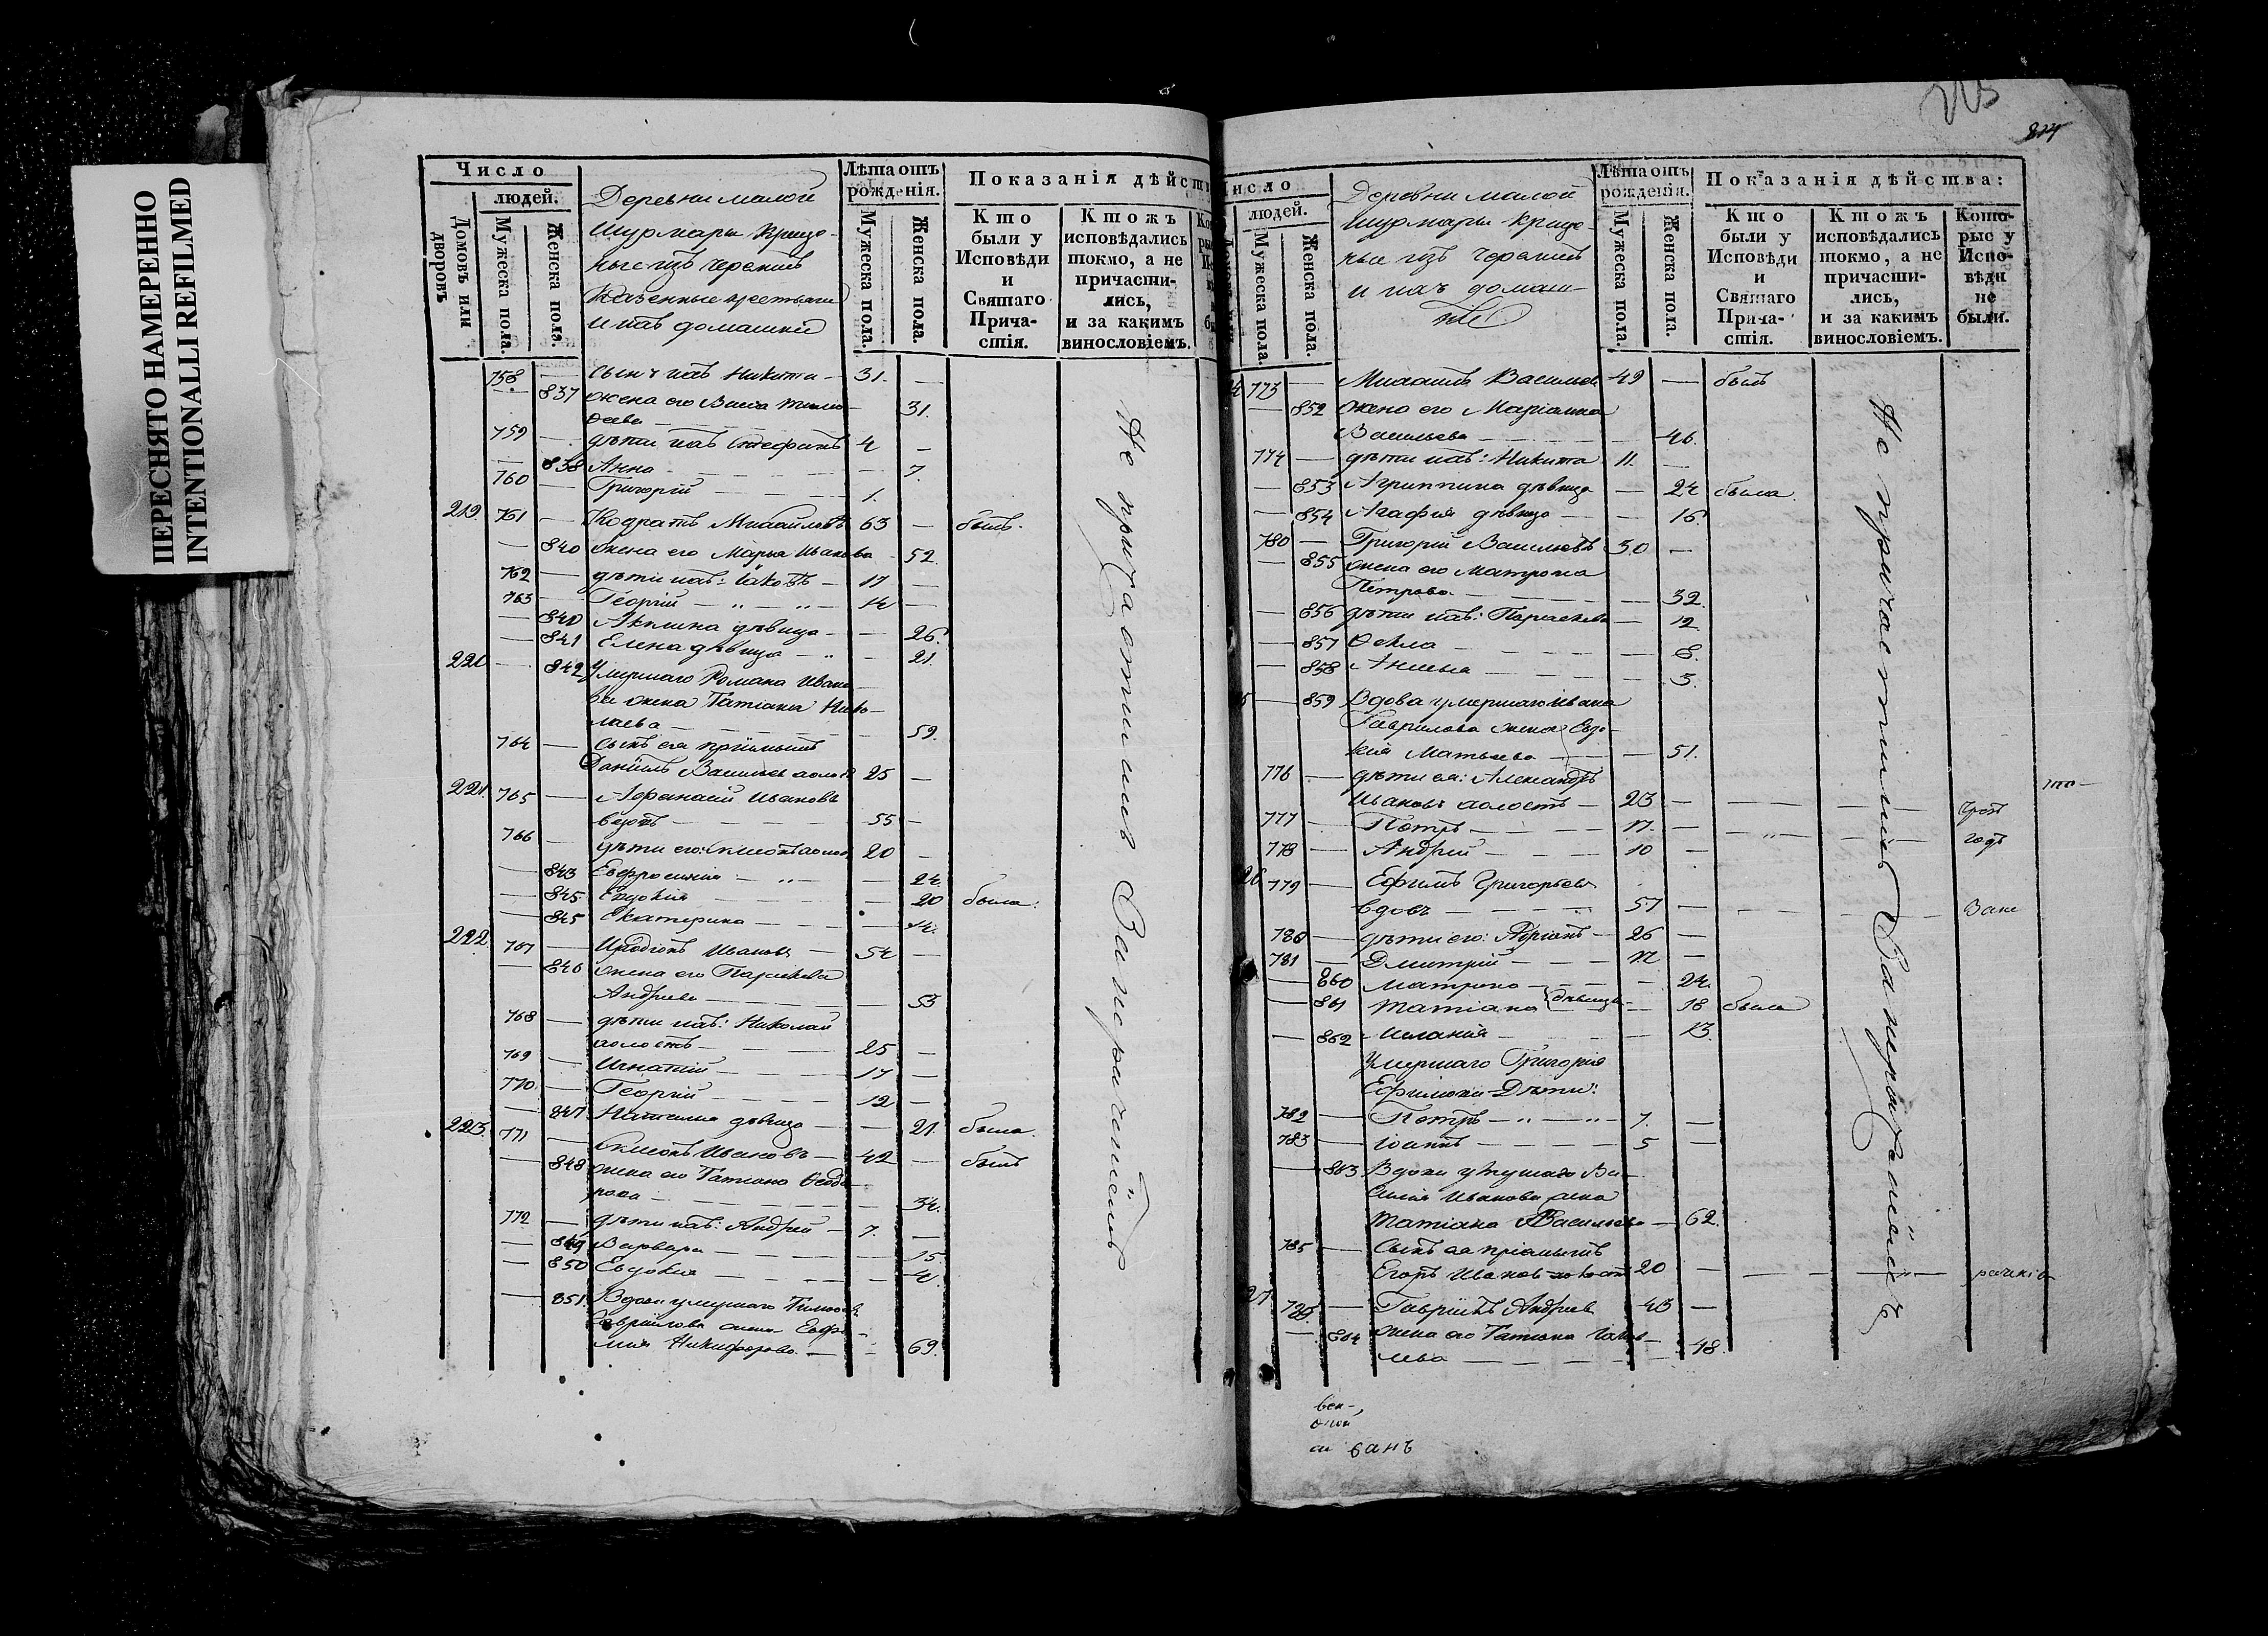 ПЕРЕСНЯТО НАМЕРЕННО
INTENTIONALLI REFILMED
Число
людей.
Домовъ или дворовъ
Мужеска пола.
Женска пола.
Деревни малой
Шурмары креще-
ные изъ черемисъ
Казенные крестьяне
и ихъ домашніе
Лѣта отъ рожденія.
Мужеска пола.
Женска пола.
Показанія дѣйст
Кто были у Исповѣди и Святаго Прича-стія.
Ктожъ исповѣдались токмо, а не причасти-лись, и за какимъ винословіемъ.
758 — сынъ ихъ Никита — 31. —
— 837 жена его Васса Тимо-
ѳеева — 31.
759 — дѣти ихъ Стефанъ 4 —
— 838 Анна — 7.
760 — Григорій — 1.
219. 761 — Кодратъ Михайловъ 63 — былъ.
— 840 жена его Марья Иванова — 52.
762 — дѣти ихъ: Іаковъ — 17 —
763 — Георгій — 14 —
— 840 Акилина дѣвица — 26.
— 841 Елена дѣвица — 21.
220. — 842 Умершаго Романа Ивано-
ва жена Татіана Нико-
лаева — 59.
764 — сынъ ея пріимышъ
Даніилъ Васильевъ холост 25 —
221. 765 — Аѳанасій Ивановъ
вдовъ — 55 —
766 — дѣти его: Симеонъ холост 20 —
— 843 Евфросинія — 24.
— 845 Евдокія — 20 была.
— 845 Екатерина — 14.
222. 767 — Иродіонъ Ивановъ — 54 —
— 846 жена его Параскева
Андреева — 53
768 — дѣти ихъ: Николай
холостъ — 25 —
769 — Игнатій — 17 —
770. — Георгій — 12 —
— 847 Наталия дѣвица — 21. была.
223. 771 — Симеонъ Ивановъ — 42 — былъ
— 848 жена его Татіана Ѳеодо-
рова — 34.
772 — дѣти ихъ: Андрей — 7. —
— 849 Варвара — 15.
— 850 Евдокия — 4.
— 851. Вдова умершаго Тимоѳея
Гавріилова жена Евфи-
мия Никифорова — 69.
Не причастились За нераченіемъ
824
Число
людей.
Мужеска пола.
Женска пола.
Деревни малой
Шурмары креще-
ные изъ черемисъ
и ихъ домаш-
ніе
Лѣта отъ рожденія.
Мужеска пола.
Женска пола.
Показанія дѣйства:
Кто были у Исповѣди и Святаго Прича-стія.
Ктожъ исповѣдались токмо, а не причасти-лись, и за какимъ винословіемъ.
Кото-рые у Испо-вѣди не были.
773 — Михаилъ Васильевъ 49 — былъ
— 852 жена его Маріамна
Васильева — 46.
774 — дѣти ихъ: Никита 11. —
— 853 Агриппина дѣвица — 24 была.
— 854 Агафия дѣвица — 16.
780 — Григорій Васильевъ 30 —
— 855 жена его Матрона
Петрова — 32.
— 856 дѣти ихъ: Параскева — 12.
— 857 Ѳекла — 8.
— 858 Анисья — 3.
— 859 Вдова умершаго Ивана
Гаврилова жена Евдо-
кія Матвеева — 51.
776 — дѣти ея: Александръ
Ивановъ холостъ — 23 —
777 — Петръ — 17. —
778 — Андрей — 10 —
779 — Ефимъ Григорьевъ
вдовъ — 57 —
780 — дѣти его: Адріанъ — 26 —
781 — Дмитрій — 12 —
— 860 Матрона — 24.
— 861 Татіана дѣвицы — 18 была
— 862 Меланія — 13.
Умершаго Григорія
Ефимова Дѣти:
782 — Петръ — 7. —
783 — Іоаннъ — 5 —
— 863 Вдова умершаго Ва-
силія Иванова жена
Татіана Васильева — 62.
785 — Сынъ ея пріимышъ
Егоръ Ивановъ холост 20 —
Гавріилъ Андреевъ 43 —
— 864 жена его Татиана Іаков-
лева — 48.
Не причастились За нераченіемъ
годъ